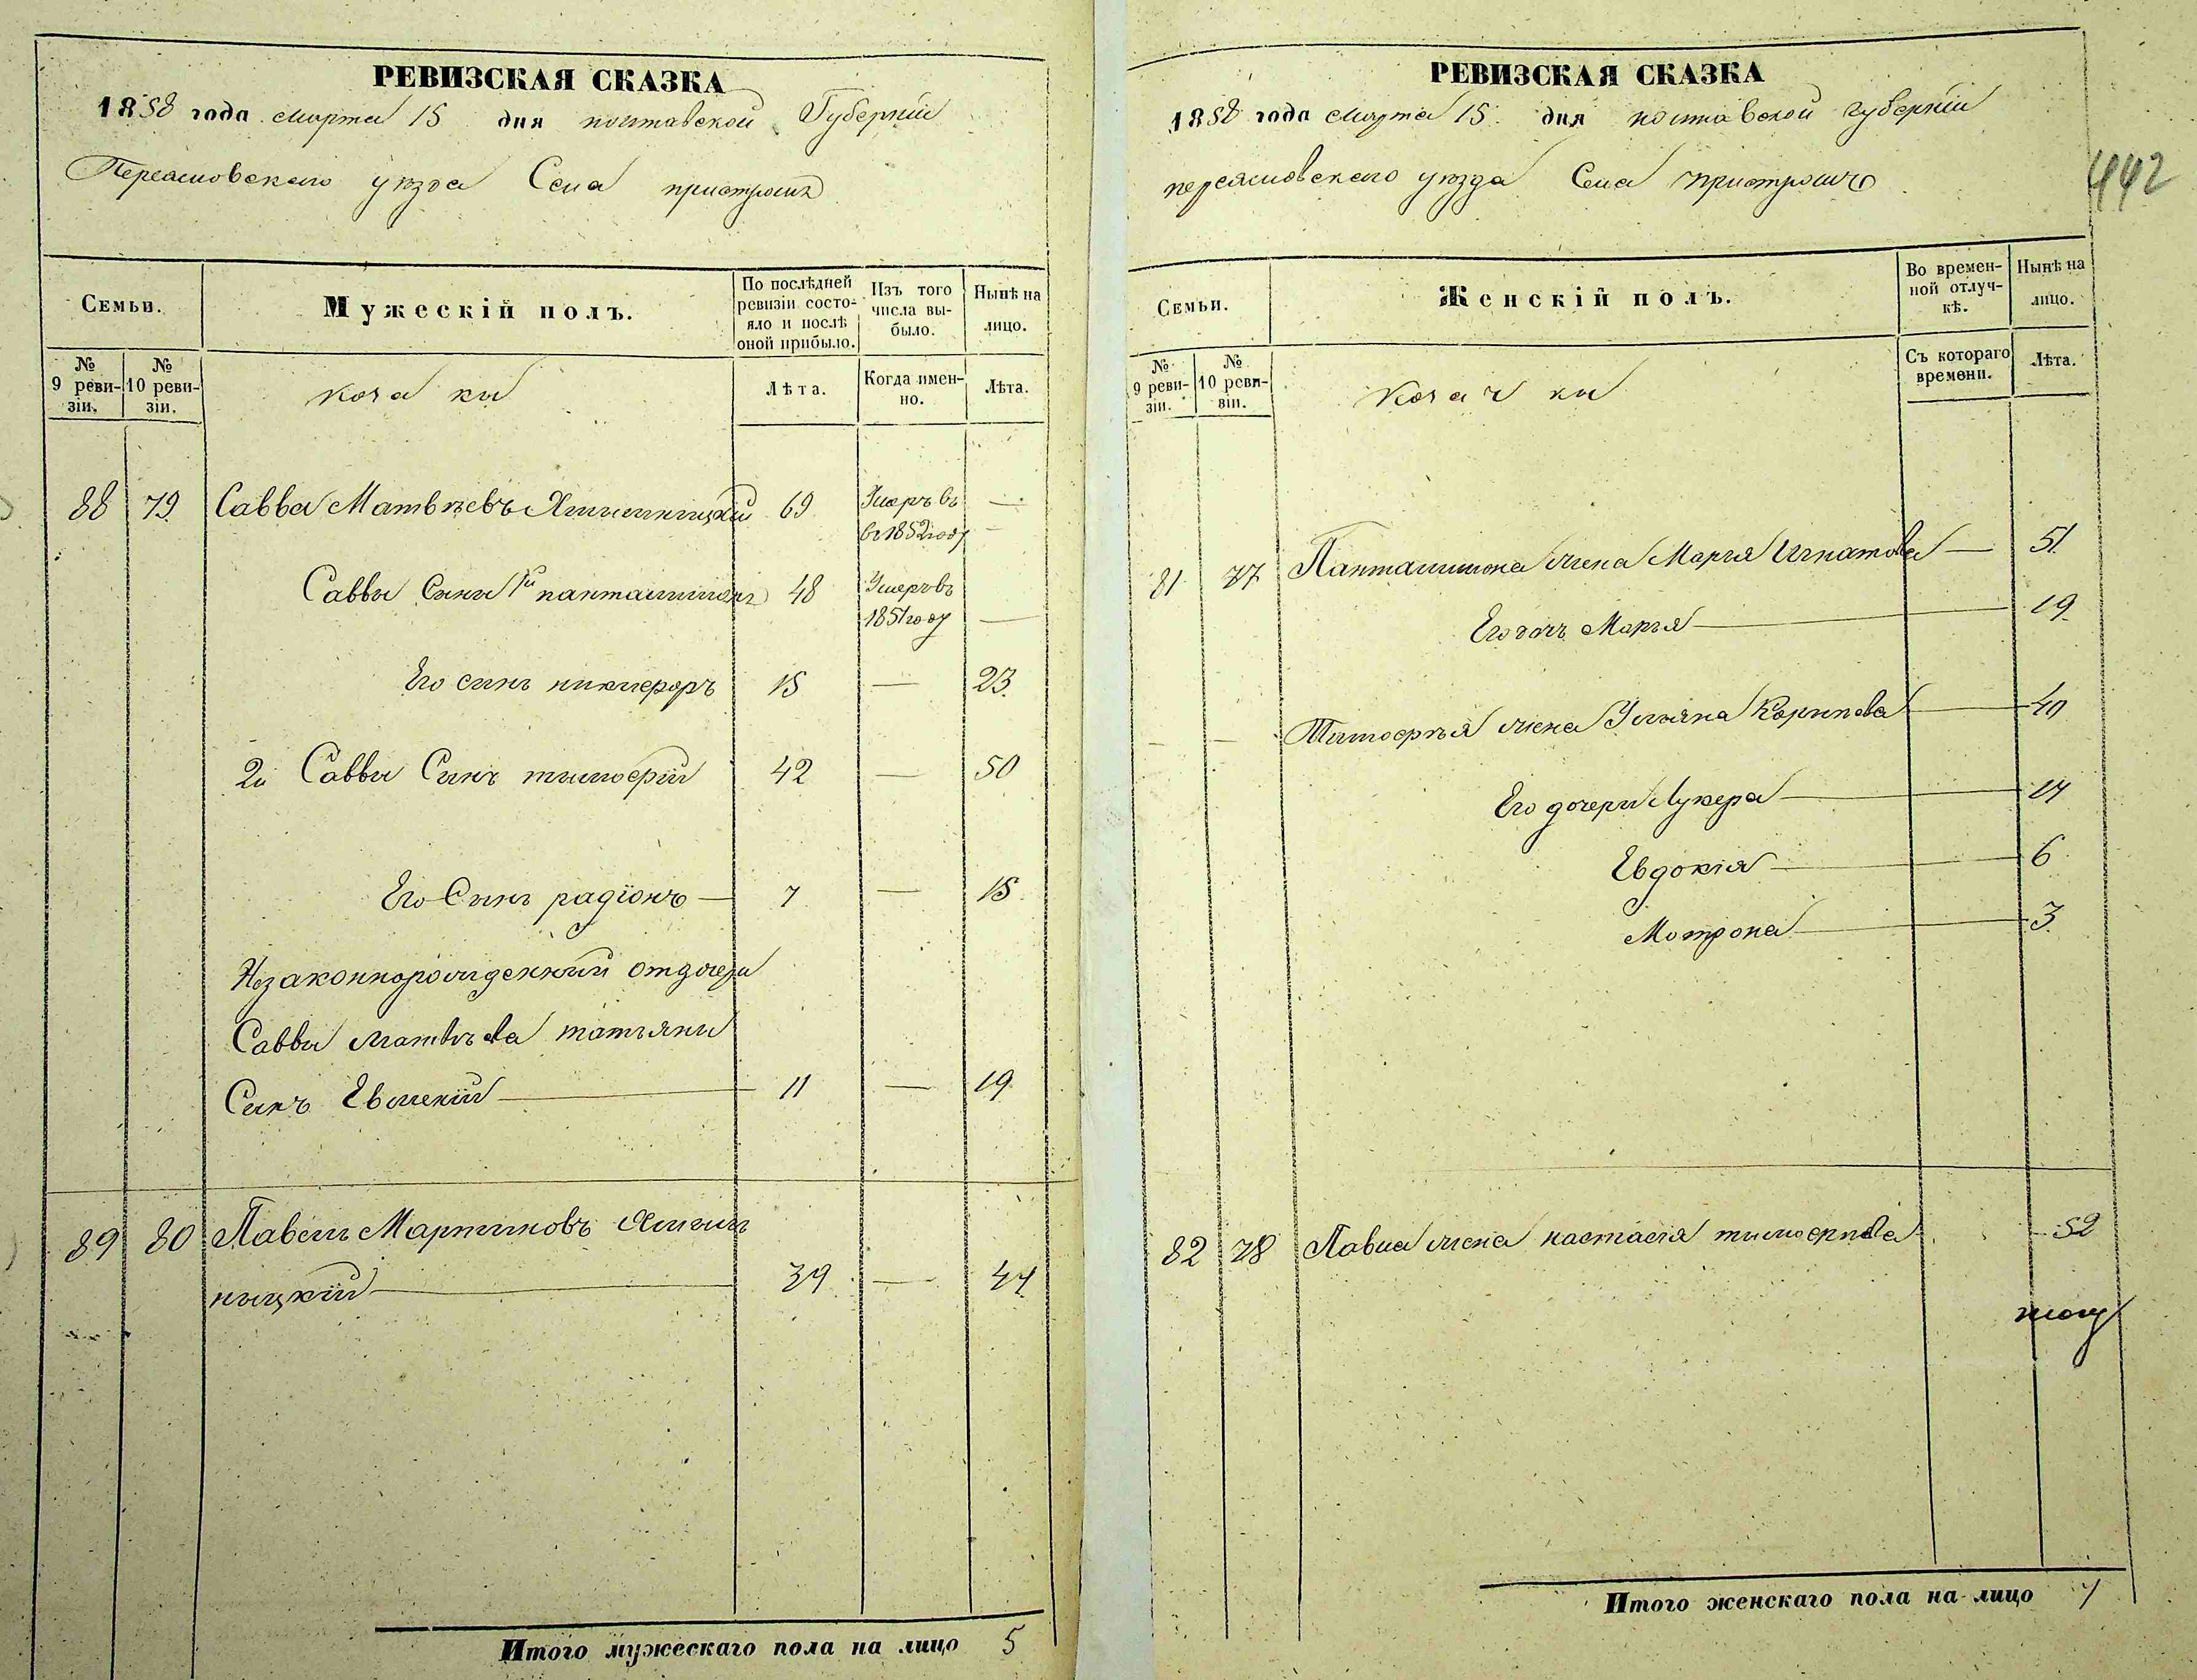 РЕВИЗСКАЯ СКАЗКА
1858 года марта 15 дня полтавской Губерніи
Переяславского уѣзда Села пристромъ
Семьи.
Мужескій полъ.
По послѣдней ревизіи состояло и послѣ оной прибыло.
Изъ того числа выбыло.
Нынѣ на лицо.
№ 9 ревизіи.
№ 10 ревизіи.
козаки
Лѣта.
Когда именно.
Лѣта.
88 79 Савва Матвѣевъ 69 Умеръ въ —
въ 1852 году —
Саввы Сынъ 1й панталимонъ 48 Умеръ въ
1851 году —
Его сынъ никифоръ 15 — 23
2й Саввы Сынъ тимофѣй 42 — 50
Его Сынъ радіонъ — 7 — 15
Незаконнорожденный отдочери
Саввы матвѣева татьяны
Сынъ Евмений — 11 — 19
89 80 Павелъ Мартиновъ Ялин
ницкій — 39 — 47
Итого мужескаго пола на лицо 5
РЕВИЗСКАЯ СКАЗКА
1858 года марта 15 дня полтавской губерніи
переяславского уѣзда Села пристромъ
442
Семьи.
Женскій полъ.
Во временной отлучкѣ.
Нынѣ на лицо.
№ 9 ревизіи.
№ 10 ревизіи.
козачки
Съ котораго времени.
Лѣта.
81 77 Панталимона жена Марья Игнатова — 51
Его дочь Марья — 19
— — Тимофея жена Ульяна Карпова — 40
Его дочери Лукера — 14
Евдокія — 6
Мотрона — 3
82 78 Павла жена настасія тимофеева — 52
Итого женскаго пола на лицо 7